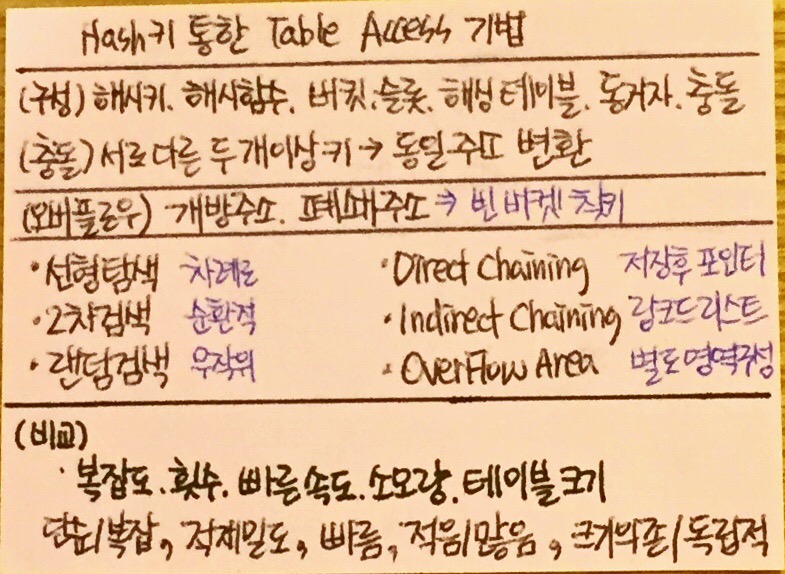 Hash키 통한 Table Access 기법
(구성) 해시키. 해시함수. 버킷. 슬롯. 해싱 테이블. 동거자. 충돌
(충돌) 서로 다른 두개이상 키 → 동일 주소 변환
(오버플로우) 개방주소. 폐쇄주소 → 빈 버켓 찾기
· 선형탐색 차례로
· Direct Chaining 저장후 포인터
· 2차검색 순환적
· Indirect Chaining 링크드리스트
· 랜덤검색 우작위
· OverFlow Area 별도영역구성
(비교)
· 복잡도. 횟수. 빠른속도. 소모량. 테이블크기
단순/복잡, 적재밀도, 빠름, 적음/많음, 크기의존/독립적